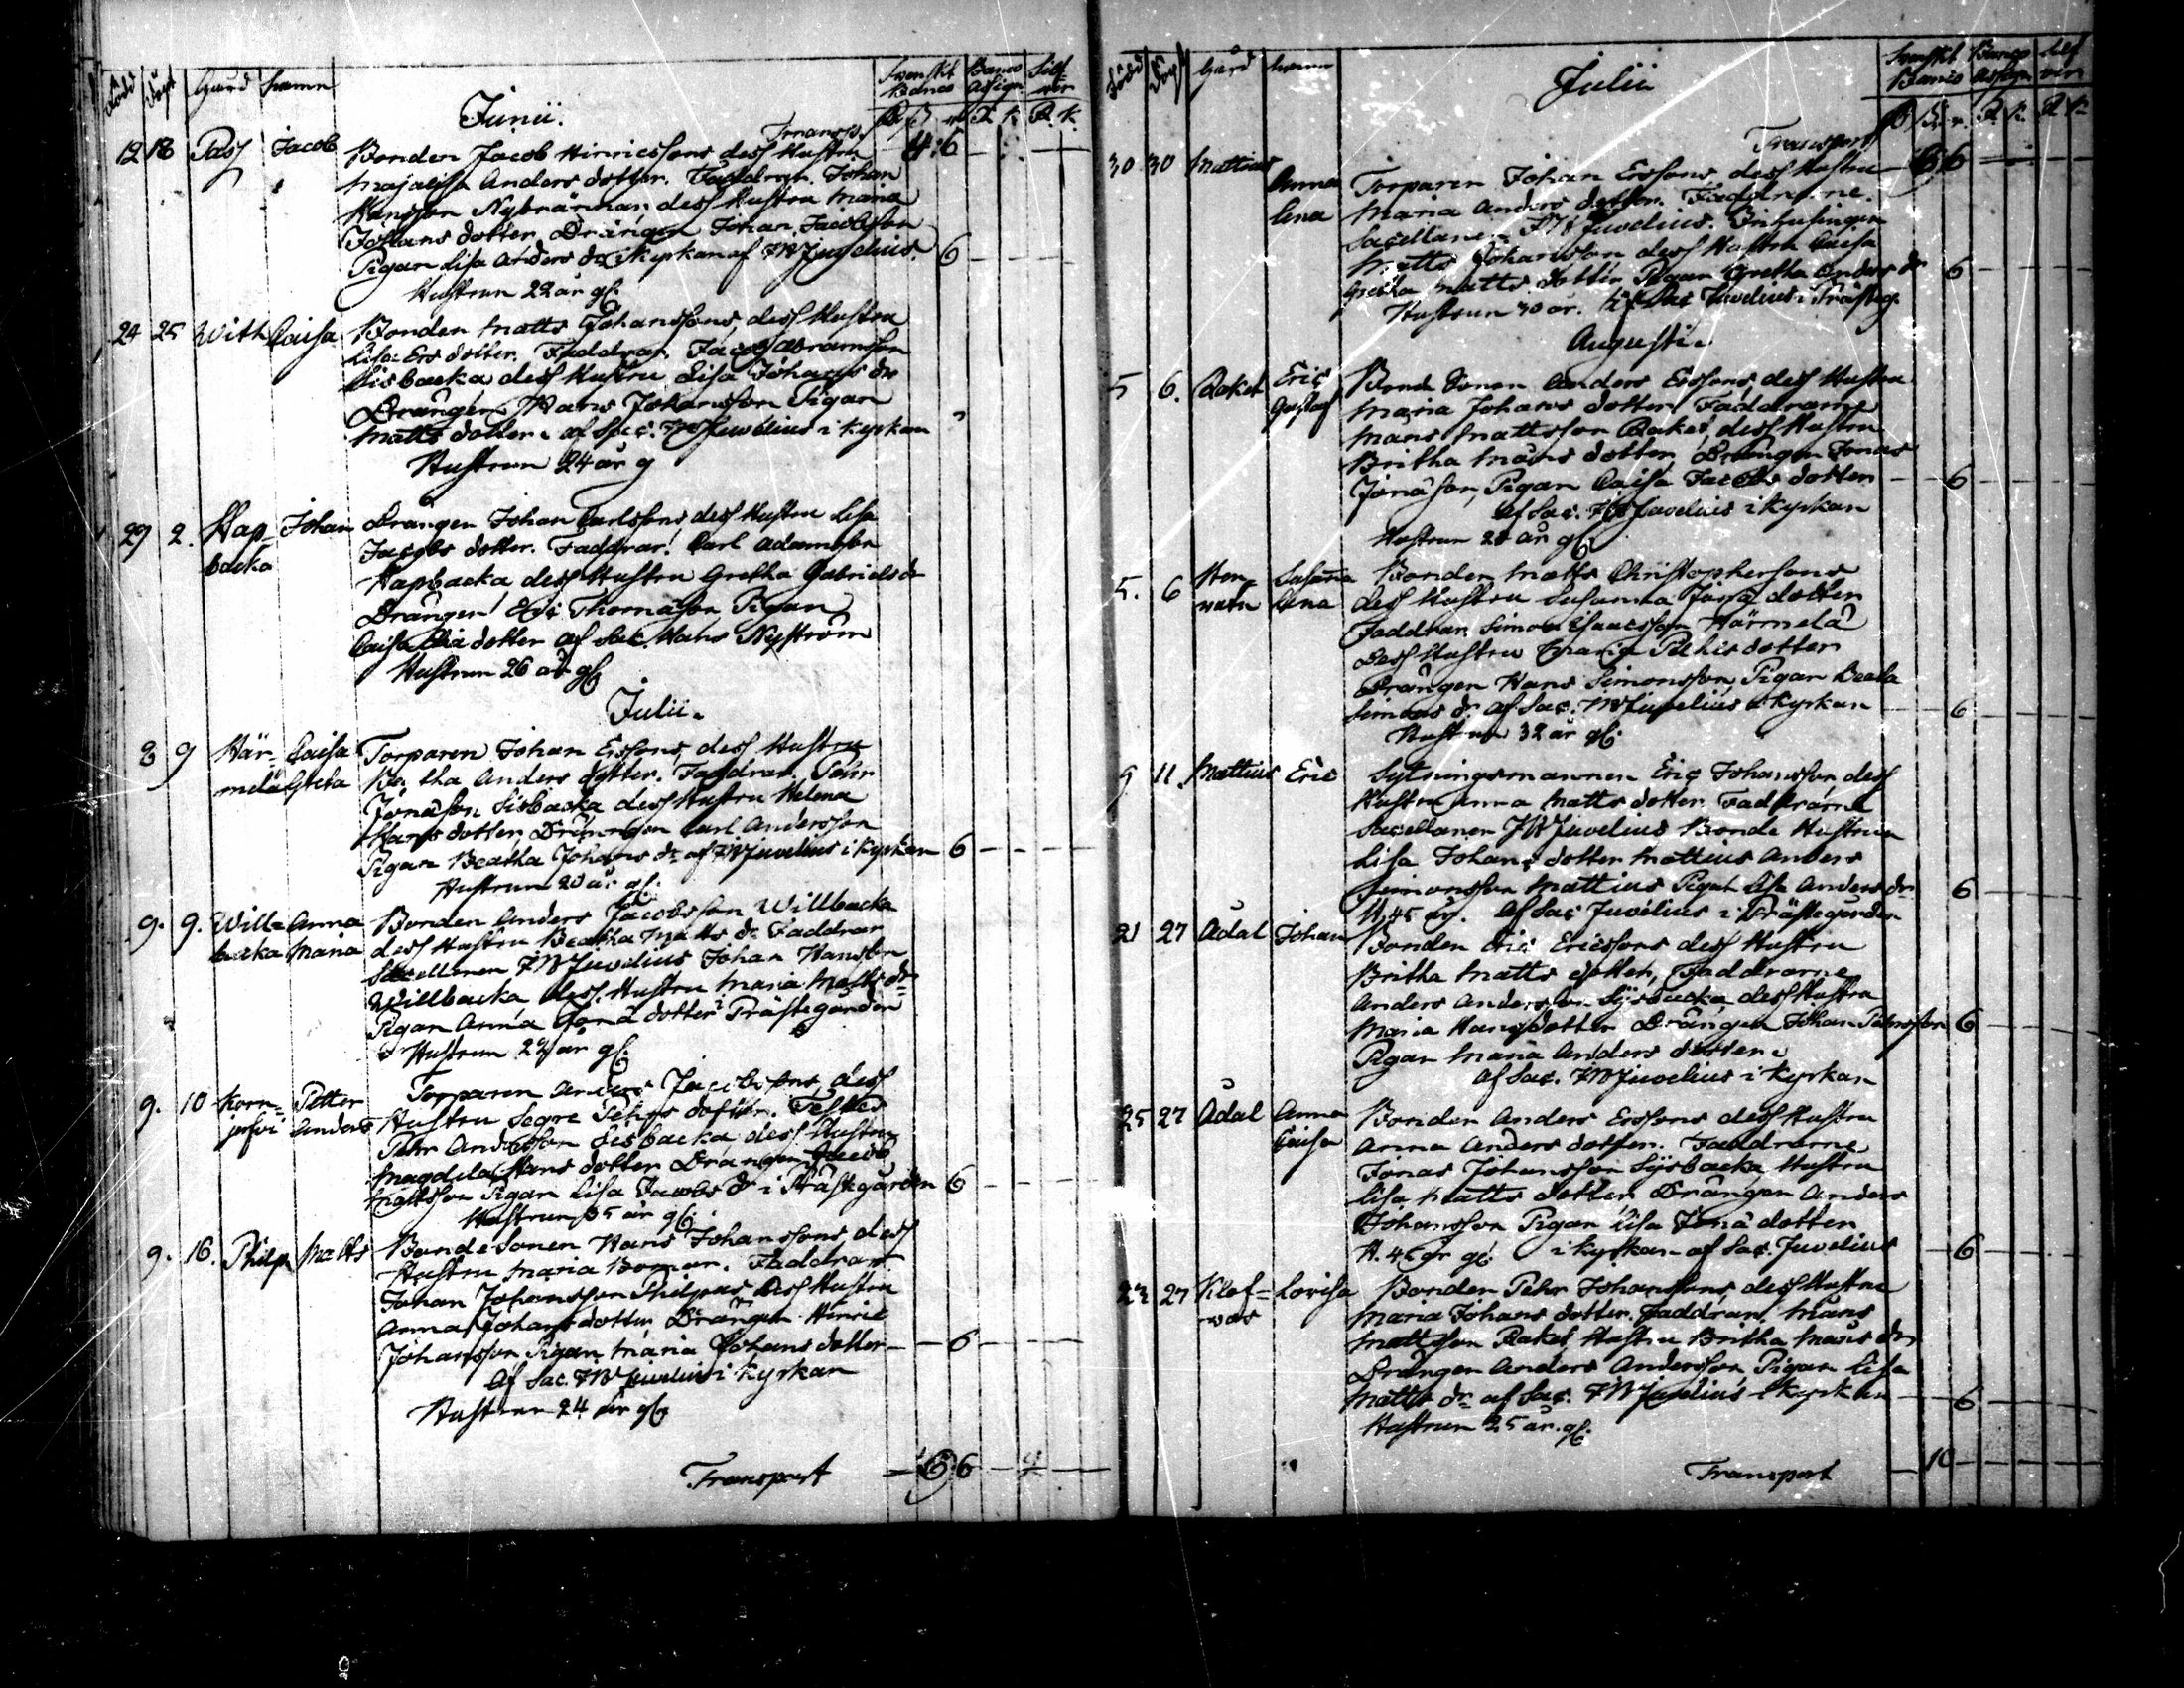 Född Döpt Gård Namn Svenskt Banco Silf-
Banco Assign. ver
Junii.
Transp. 4 : 6
12 18 Pass Jacob Bonden Jacob Hinricssons dess Hustru
Majalisa Anders dotter. Faddrar. Johan
Hansson dess Hustru Maria
Johans dotter Drängen Johan Jacobsson
Pigan Lisa Anders dr i Kyrkan af F W Juvelius. 6
Hustrun 22 år gl.
24 25 With Caisa Bonden Matts Johanssons, dess Hustru
Lisa Ers dotter. Faddrar. Jacob Abramsson
Sisbacka dess Hustru Lisa Johans dr
Drängen Hans Johansson Pigan
Matts dotter. af Sac. F W Juvelius i Kyrkan
Hustrun 24 år g
29 2. Hap- Johan Drängen Johan Carlssons dess Hustru Lisa
backa Jacobs dotter. Faddrar. Carl Adamsson
Hapbacka dess Hustru Gretha Gabriels dr
Drängen Eric Thomasson Pigan
Caisa dotter af Sac. Hans Nyström
Hustrun 26 år gl
Julii.
8 9 Här- Caisa Torparen Johan Erssons, dess Hustru
melä Greta Anders dotter. Faddrar. Pehr
Jonasson Sisbacka dess Hustru Helena
Hans dotter, Drängen Carl Andersson
Pigan Beatha Johans dr af F W Juvelius i Kyrkan 6
Hustrun 20 år gl.
9. 9. Will- Anna Bonden Anders Jacobsson Willbacka
backa Maria dess Hustru Beatha Matts dr Faddrar
Sacellanen F W Juvelius Johan Hansson
Willbacka dess Hustru Maria Matts dr
Pigan Anna Jona dotter i Prästegården
Hustrun 22 år gl.
9. 10 Korn- Petter Torparen Anders Jacobssons, dess
jerfvi Anders Hustru Segre Pehrs dotter. Testes
Pehr Andersson Sisbacka dess Hustru
Magdela Hans dotter Drängen Jacob
Mattsson Pigan Lisa Jacobs dr i Prästgården 6
Hustrun 35 år gl.
9. 16. Philp Matts Bonde Sonen Hans Johanssons, dess
Hustru Maria Boman. Faddrar
Johan Johansson Philpus dess Hustru
Anna Johans dotter Drängen Hinric
Johansson Pigan Maria Johans dotter 6
af Sac. F W Juvelius i Kyrkan
Hustrun 24 år gl.
Transport 6 6
Född Döpt Gård Namn Julii Svenskt Banco Silf
Banco Assign ver
Transport 6 6
30 30 Mattius Anna Torparen Johan Erssons, dess Hustru
Lena Maria Anders dotter. Faddrarne.
Sacellanen F W Juvelius. Inhysingen
Matts Johansson dess Hustru Caisa
Greta Matts dotter Pigan Gretha Anders dr 6
Hustrun 30 år. af Sac Juvelius i Prästeg.
Augusti.
5 6. Raket Eric Bonde Sonen Anders Erssons, dess Hustru
Gustaf Maria Johans dotter Faddrarne
Måns Mattsson Raket, dess Hustru
Britha Måns dotter Drängen Jonas
Jonasson, Pigan Caisa Jacobs dotter 6
af Sac. F W Juvelius i Kyrkan
Hustrun 28 år gl
5. 6 Susanna Bonden Matts Christophersons
Lena dess Hustru Susanna Jona dotter
Faddrar. Simon Isaacsson Härmelä
dess Hustru Maria dotter
Drängen Hans Simonsson Pigan Beata
Simons dr af Sac. F W Juvelius i Kyrkan 6
Hustrun 32 år gl.
9 11. Mattius Eric Sytningsmannen Eric Johansson dess
Hustru Anna Matts dotter Faddrarne
Sacellanen F W Juvelius Bonde Hustrun
Lisa Johans dotter Mattius Anders
Simonsson Mattius Pigan Lisa Anders dr 6
H. 45 år. af Sac Juvelius i Prästegården
21 27 Ådal Johan Bonden Eric Ericssons dess Hustru
Britha Matts dotter, Faddrarne
Anders Andersson Sysbacka dess Hustru
Maria Hansdotter Drängen Johan Johansson 6
Pigan Maria Anders dotter.
af Sac. F W Juvelius i Kyrkan
25 27 Ådal Anna Bonden Anders Erssons dess Hustru
Caisa Anna Anders dotter. Faddrarne
Jonas Johansson Sysbacka, Hustru
Lisa Matts dotter Drängen Anders
Johansson Pigan Lisa Jona dotter
H. 45 år gl. i Kyrkan af Sac. Juvelius 6
27 Klof- Lovisa Bonden Pehr Johanssons, dess Hustru
war Maria Johans dotter. Faddrar, Måns
Mattsson Raket, Hustru Britha Måns dr
Drängen Anders Andersson Pigan Lisa
Matts dr af Sac. F W Juvelius i Kyrkan 6
Hustrun 25 år. gl.
Transport 10